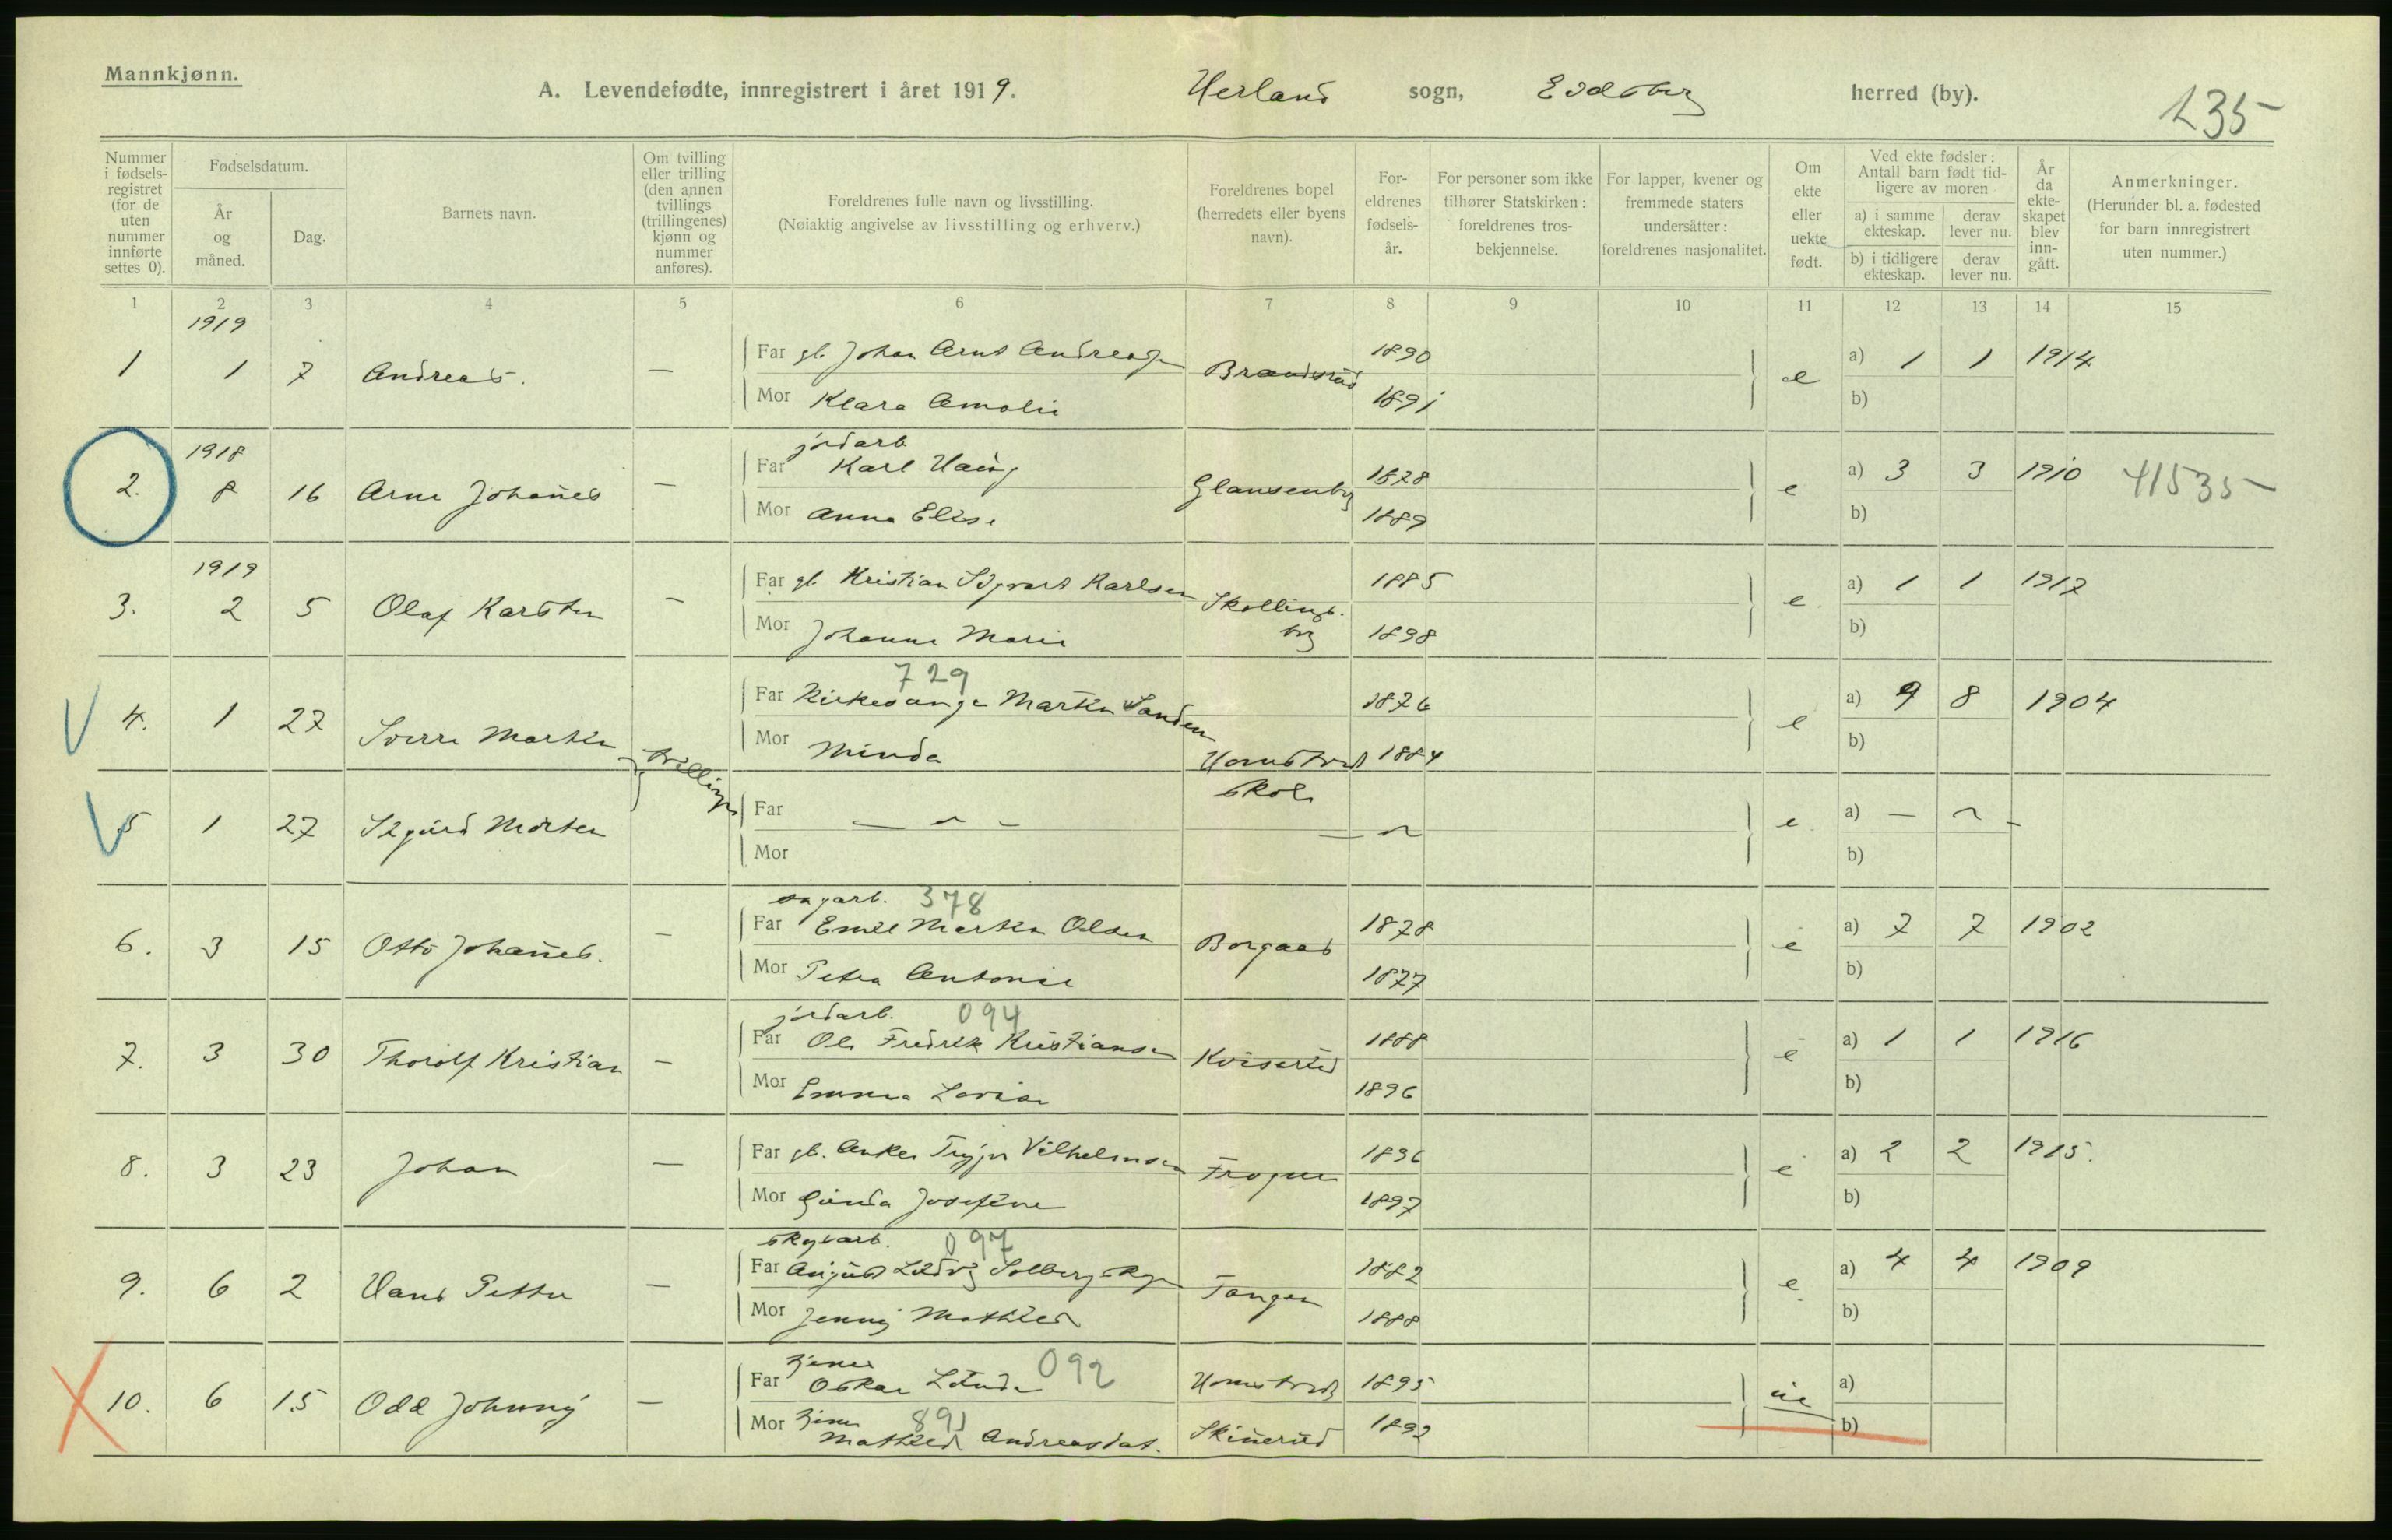 Mannkjønn.
A. Levendefødte, innregistrert i året 1919. Herland sogn, Eidsberg herred (by). 135
Nummer i fødselsregistret (for de uten nummer innførte settes 0).
Fødselsdatum.
År og måned.
Dag.
Barnets navn.
Om tvilling eller trilling (den annen tvillings (trillingenes) kjønn og nummer anføres).
Foreldrenes fulle navn og livsstilling.
(Nøiaktig angivelse av livsstilling og erhverv.)
Foreldrenes bopel (herredets eller byens navn).
Foreldrenes fødselsår.
For personer som ikke tilhører Statskirken: foreldrenes trosbekjennelse.
For lapper, kvener og fremmede staters undersåtter: foreldrenes nasjonalitet.
Om ekte eller uekte født.
Ved ekte fødsler: Antall barn født tidligere av moren
a) i samme ekteskap. derav lever nu.
b) i tidligere ekteskap. derav lever nu.
År da ekteskapet blev inngått.
Anmerkninger.
(Herunder bl. a. fødested for barn innregistrert uten nummer.)
1 2 3 4 5 6 7 8 9 10 11 12 13 14 15
1919
1 1 7 Andreas. — Far gb. Johan Arnt Andreasen Brandsrud 1890 e a) 1 1 1914
Mor Klara Amalie 1891 b)
1918 jordarb
2. 8 16 Arne Johannes — Far Karl Haug Glansenby 1878 e a) 3 3 1910 41535
Mor Anna Elise 1889 b)
1919
3. 2 5 Olaf Karsten — Far gb. Kristian Sigvart Karlsen Skollings. by 1885 e a) 1 1 1917
Mor Johanne Marie 1898 b)
729
4. 1 27 Sverre Martin tvillinger Far Kirkesanger Martin Sanden 1876 e a) 9 8 1904
Mor Minda Hornstvedt skole 1884 b)
5 1 27 Sigurd Morten Far — " — — " e. a) — " —
Mor b)
sagarb. 378
6. 3 15 Otto Johannes. — Far Emil Martin Olsen Borgaas 1878 e a) 7 7 1902
Mor Petra Antonie 1877 b)
jordarb. 094
7. 3 30 Thorolf Kristian — Far Ole Fredrik Kristiansen Kviserud 1888 e a) 1 1 1916
Mor Emma Lovise 1896 b)
8. 3 23 Johan — Far gb. Anker Trygve Vilhelmsen Frogner 1896 e a) 2 2 1915.
Mor Gunda Josefine 1897 b)
skogsarb. 097
9. 6 2 Hans Petter — Far August Ludvig Solbergskogen Tangen 1882 e a) 4 4 1909
Mor Jenny Mathilde 1888 b)
tjener 092
10. 6 15 Odd Johnny — Far Oskar Lunde Hornstvedt 1895 ue a)
Mor tjener 891 Mathilde Andreasdat. Skinnerud 1892 b)